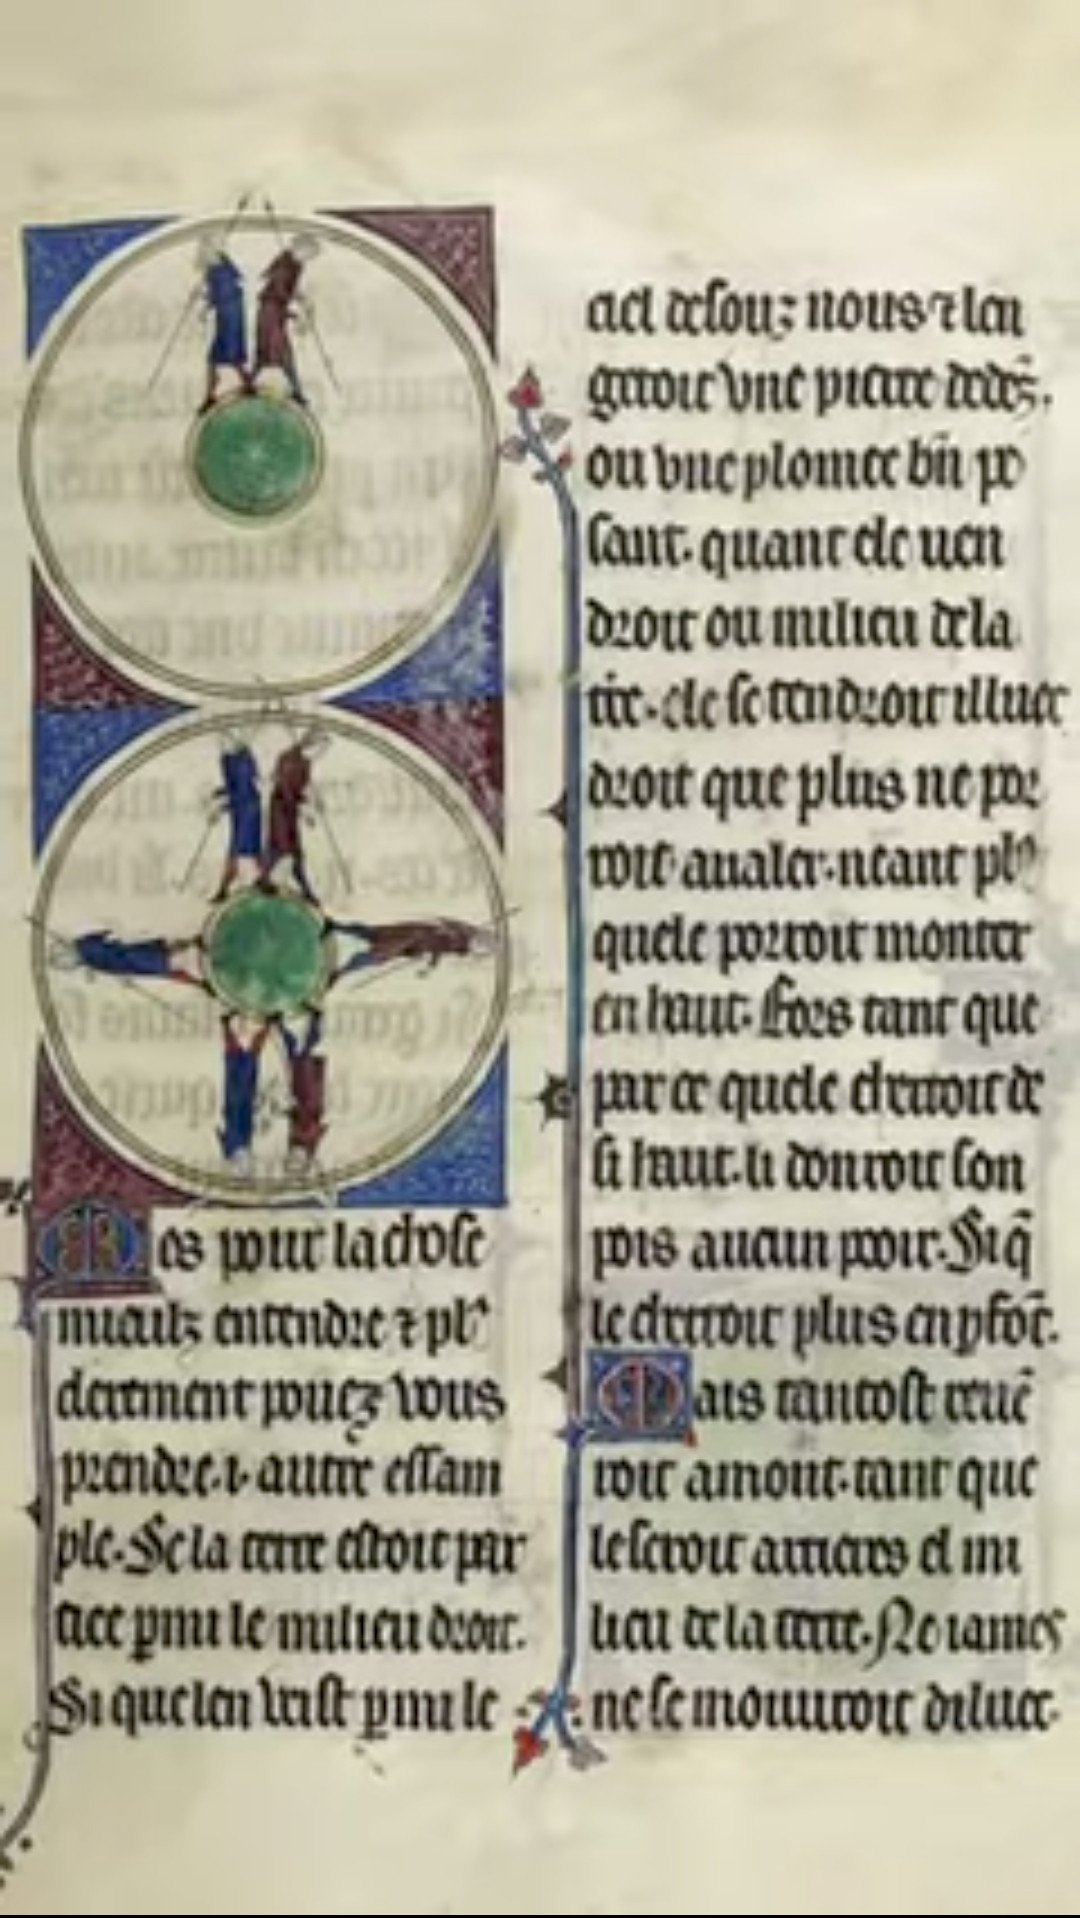 Mes pour la chose
miaulz entendre ⁊ pl'
clerement pouez vous
prendre .i. autre essam
ple. Se la terre estoit par
tiee ꝑmi le milieu droit.
Si que len veist ꝑmi le
ciel desouz nous ⁊ len
getoit vne pierre dedēs.
ou vne plomee bn̄ pe
sant. quant ele uen
droit ou milieu de la
t're. ele se tendroit illuec
droit que plus ne por
roit aualer. neant pl'
quele porroit monter
en haut. Fors tant que
par ce quele cherroit de
si haut. li donroit son
pois aucun pooir. Si q̄
le cherroit plus en ꝑfōt.
Mais tantost reuē
roit amont. tant que
le seroit arrieres el mi
lieu de la terre. Ne iames
ne se mouuroit diluec.